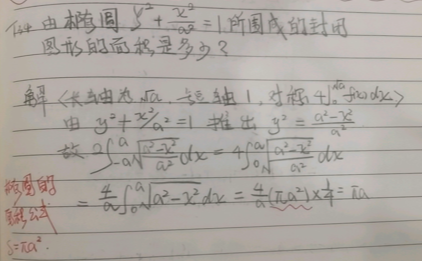 由椭圆 y² + x²/a² = 1 所围成的封闭
图形的面积是多少？
解〈长轴为√a，与短轴1，对称 4∫₀^√a f(x)dx〉
由 y² + x²/a² = 1 推出 y² = (a²-x²)/a²
故 2∫₋ₐ^a √((a²-x²)/a²) dx = 4∫₀^a √((a²-x²)/a²) dx
= 4/a ∫₀^a √(a²-x²) dx = 4/a (πa²) × 1/4 = πa
椭圆的
面积公式
S=πa².